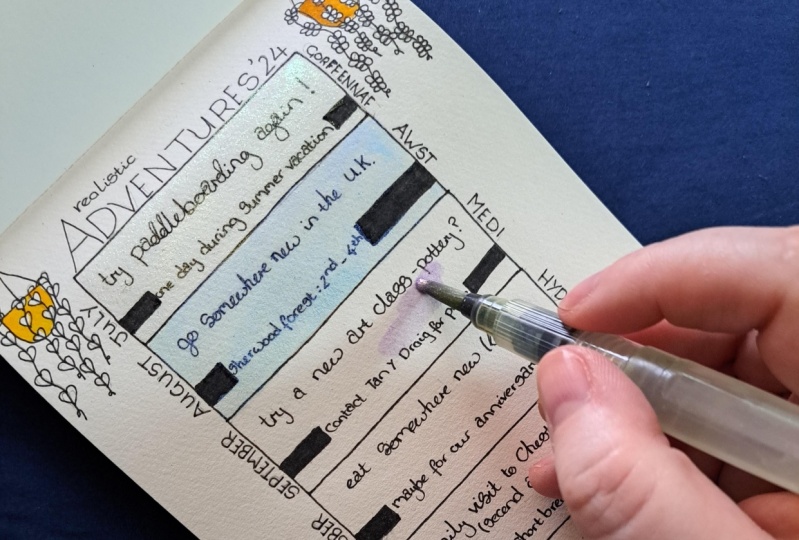 realistic
ADVENTURES '24
GORFFENNAF
try paddleboarding again!
one day during summer vacation
JULY
AWST
go somewhere new in the U.K.
Sherwood forest: 2nd - 4th
AUGUST
MEDI
try a new art class - pottery?
Contact Tan Y Draig for
SEPTEMBER
HYD
eat somewhere new
maybe for our anniversar
BER
ily visit to Chest
(second
short bre